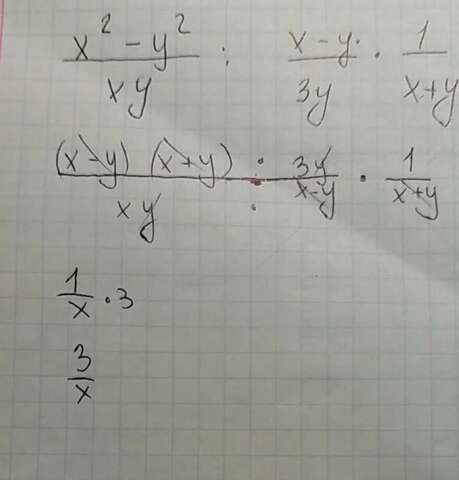 x² - y² / xy : x - y / 3y · 1 / x+y
(x - y) (x + y) / xy : 3y / x - y · 1 / x+y
1/x · 3
3/x